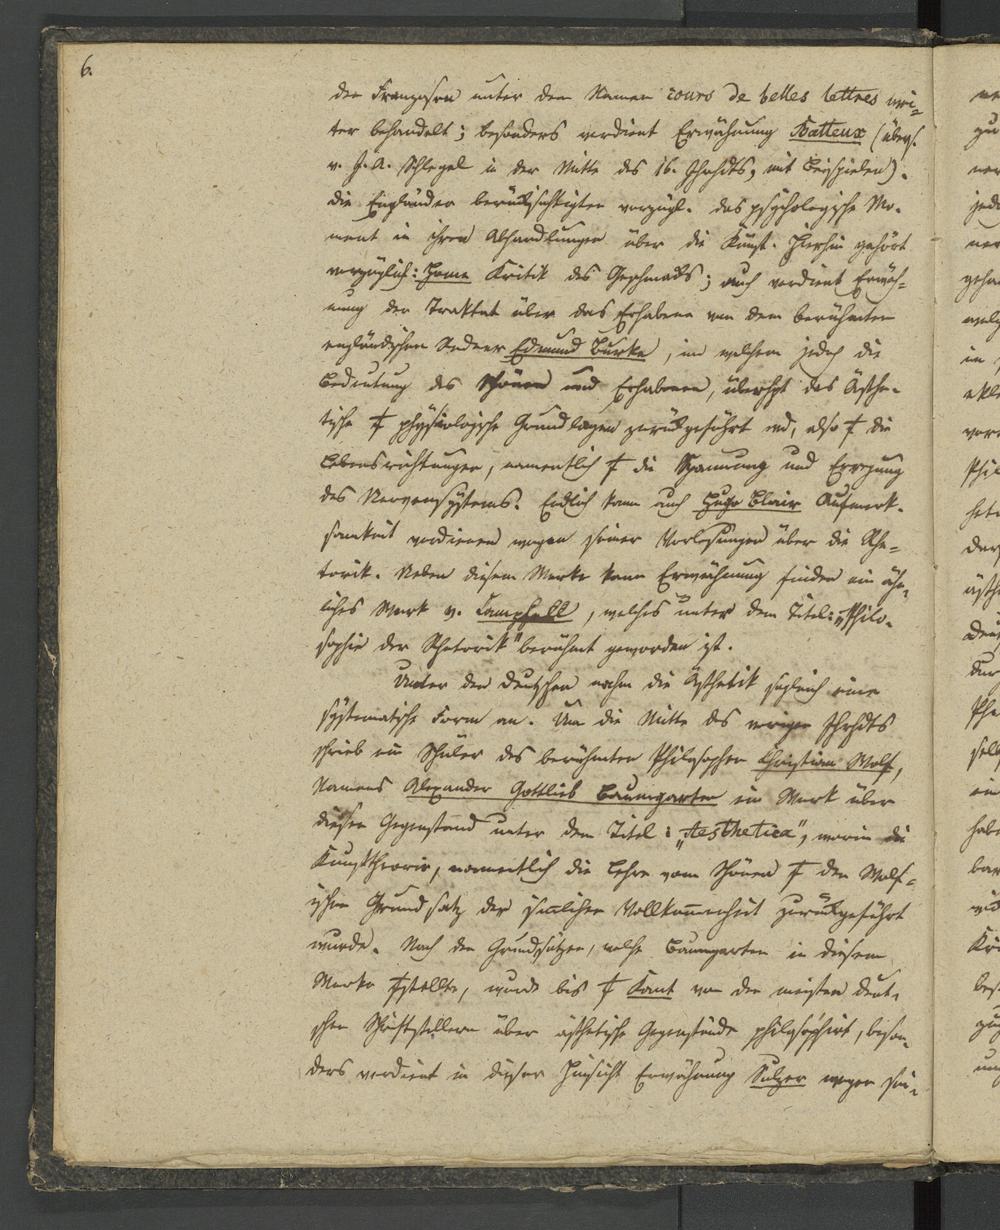 6.
den Franzosen unter dem Namen cours de belles lettres wei-
ter behandelt; besonders verdient Erwähnung Batteux (übers.
v. J. A. Schlegel in der Mitte des 16. Jhrhdts, mit Beispielen).
die Engländer berücksichtigten vorzügl. das psychologische Mo-
ment in ihren Abhandlungen über die Kunst. Hierhin gehört
vorzüglich: Home Kritik des Geschmacks; auch verdient Erwäh-
nung der Traktat über das Erhabene von dem berühmten
engländischen Redner Edmund Burke, in welchem jedoch die
Bedeutung des Schönen und Erhabenen, überhpt das Ästhe-
tische † physiologische Grundlagen zurückgeführt wd, also † die
Lebensrichtungen, namentlich † die Spannung und Erregung
des Nervensystems. Endlich kann auch Hugo Blair Aufmerk-
samkeit verdienen wegen seiner Vorlesungen über die Rhe-
torik. Neben diesem Werke kann Erwähnung finden ein ähn-
liches Werk v. Campbell, welches unter dem Titel: „Philo-
sophie der Rhetorik" berühmt geworden ist.
Unter den Deutschen nahm die Ästhetik sogleich eine
systematische Form an. Um die Mitte des vorigen Jhrhdts
schrieb ein Schüler des berühmten Philosophen Christian Wolf,
Namens Alexander Gottlieb Baumgarten ein Werk über
diesen Gegenstand unter dem Titel: „Aesthetica", worin die
Kunsttheorie, namentlich die Lehre vom Schönen † den Wolf-
ischen Grundsatz der sinlichen Vollkom̄enheit zurückgeführt
wurde. Nach den Grundsätzen, welche Baumgarten in diesem
Werke †stellte, wurde bis † Kant von den meisten deut-
schen Schriftstellern über ästhetische Gegenstände philosophirt, beson-
ders verdient in dieser Hinsicht Erwähnung Sulzer wegen sei-